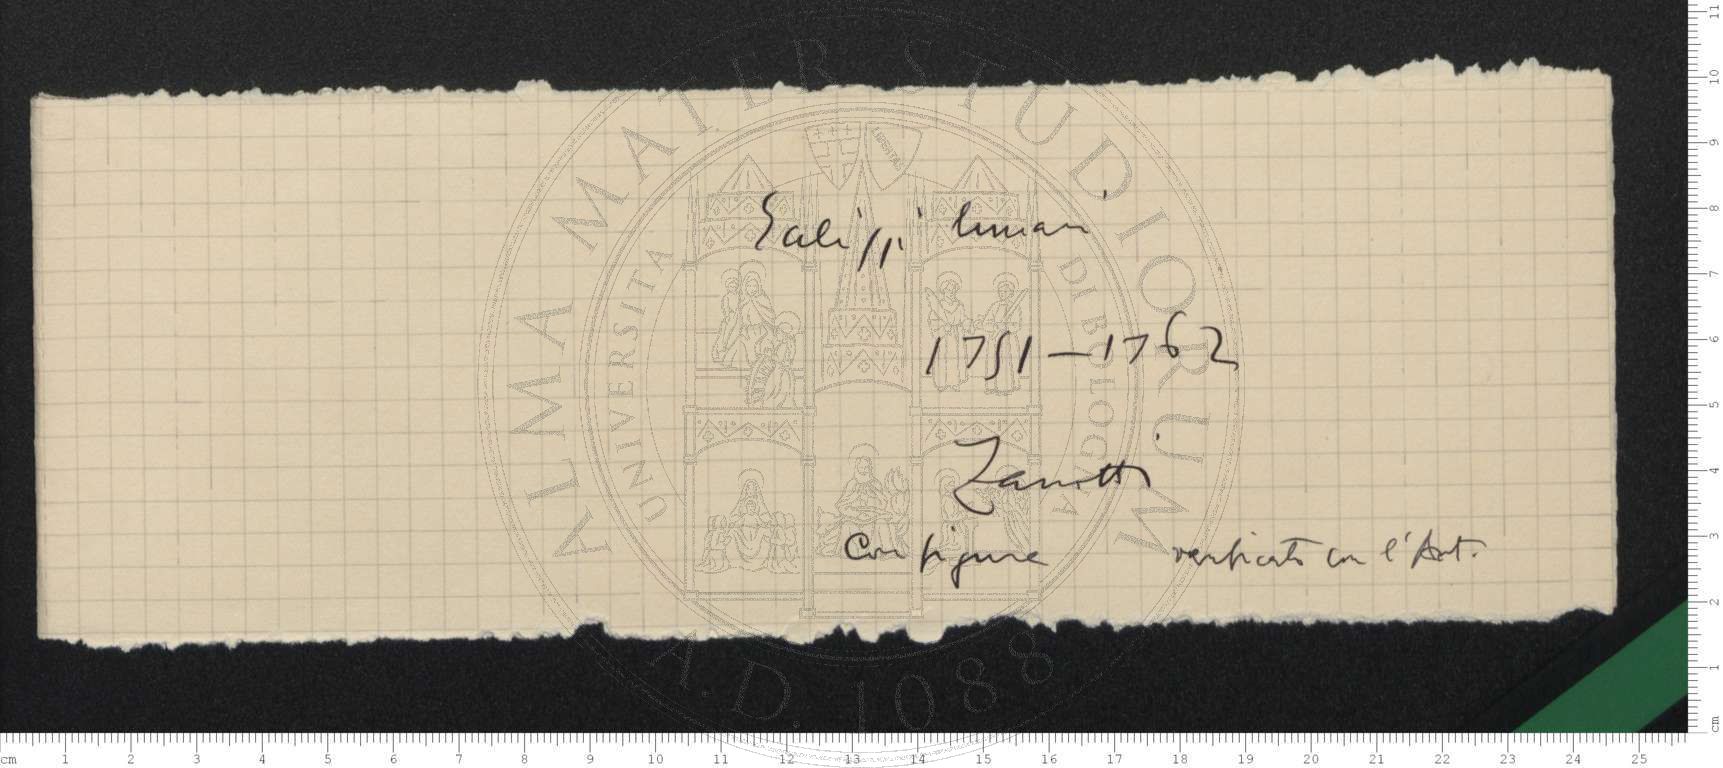 Ealissi lunari
1751-1762
Zanotti
Con figure verificato con l'Ant.
ALMA MATER STUDIORUM
UNIVERSITÀ DI BOLOGNA
A.D. 1088
LIBERTAS
cm 1 2 3 4 5 6 7 8 9 10 11 12 13 14 15 16 17 18 19 20 21 22 23 24 25
cm 1 2 3 4 5 6 7 8 9 10 11